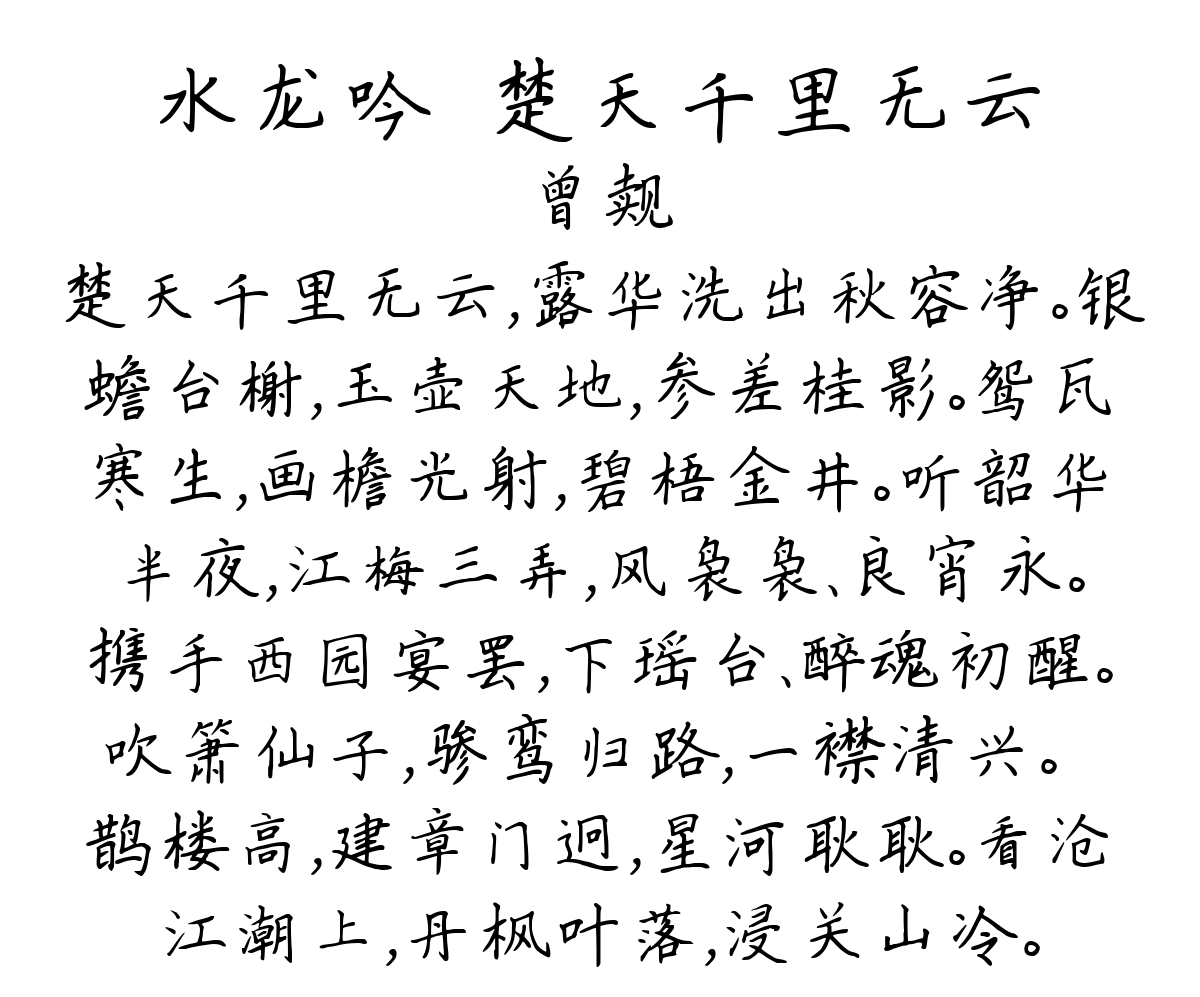 水龙吟 楚天千里无云
曾觌
楚天千里无云,露华洗出秋容净。银
蟾台榭,玉壶天地,参差桂影。鸳瓦
寒生,画檐光射,碧梧金井。听韶华
半夜,江梅三弄,风袅袅、良宵永。
携手西园宴罢,下瑶台、醉魂初醒。
吹箫仙子,骖鸾归路,一襟清兴。
鹊楼高,建章门迥,星河耿耿。看沧
江潮上,丹枫叶落,浸关山冷。